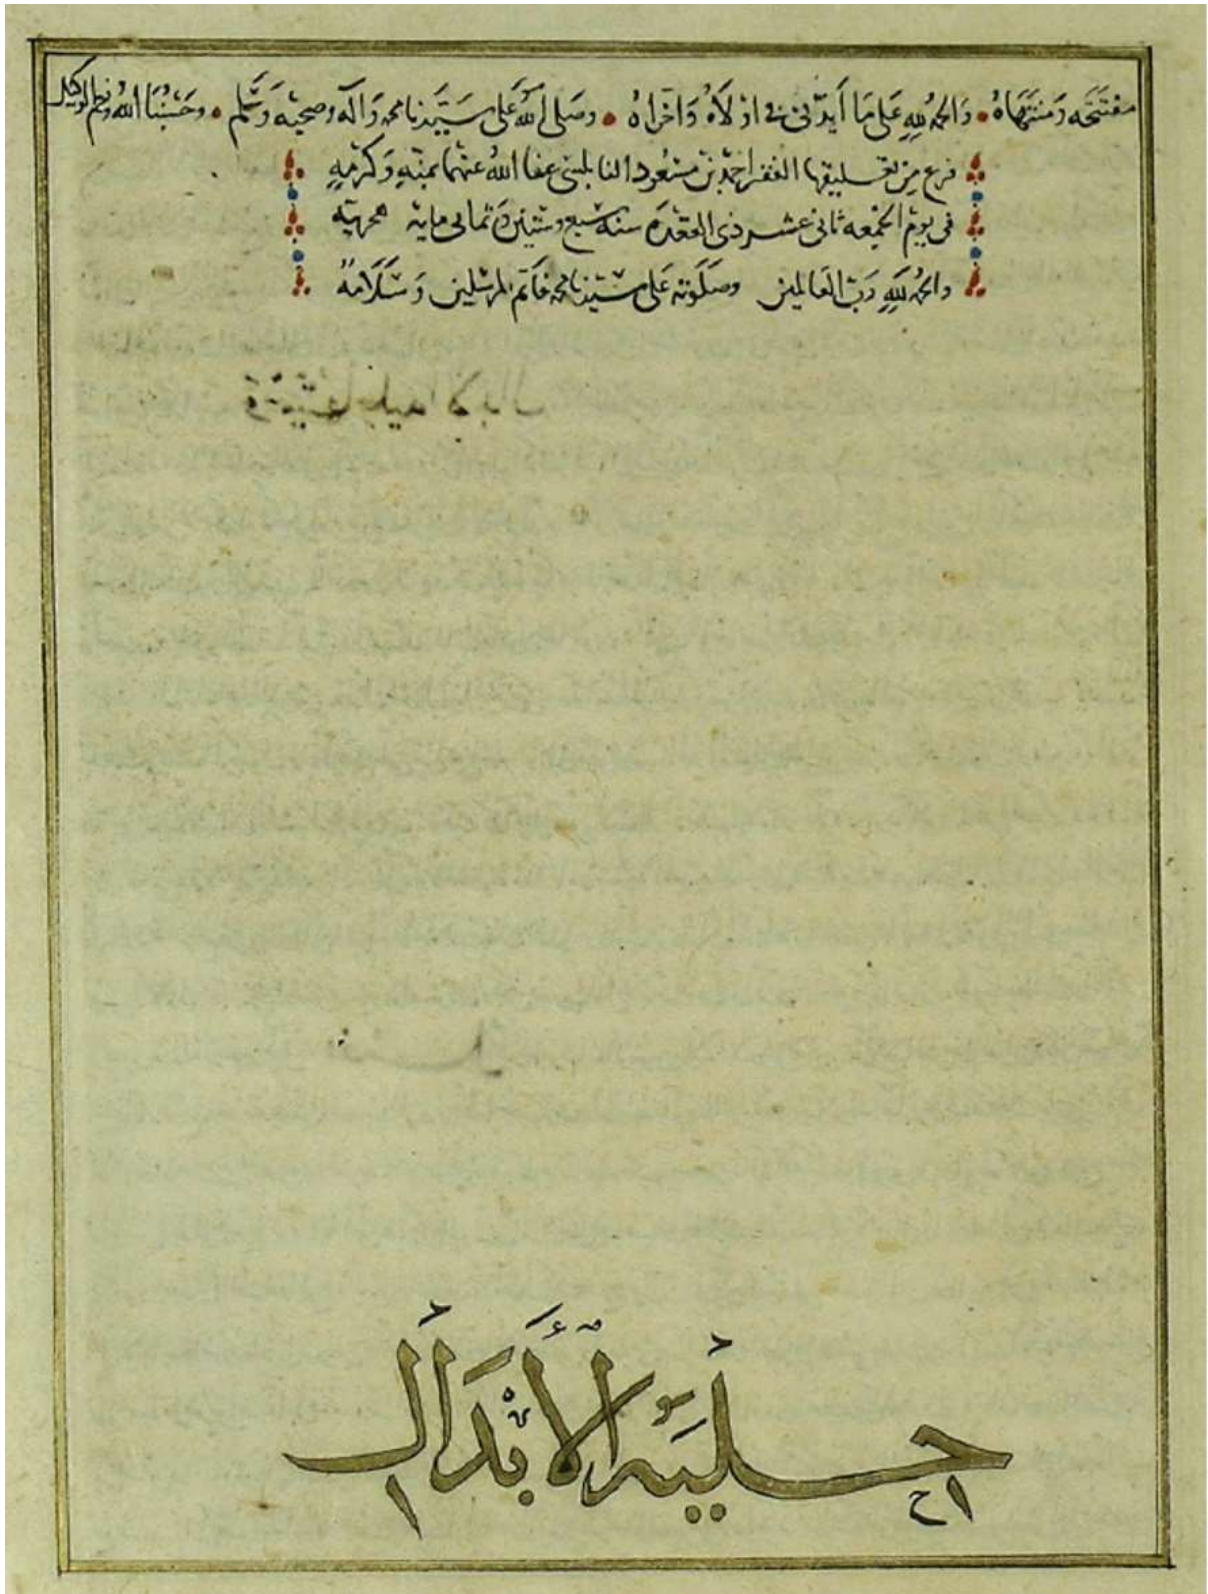 مفتتحه ومنتهاه • والحمد لله على ما أيدني في اولاه واخراه • وصلى الله على سيدنا محمد واله وصحبه وسلم • وحسبنا الله ونعم الوكيل
فرغ من تعليقها الفقير احمد بن مسعود النابلسي عفا الله عنهما بمنه وكرمه
في يوم الجمعه ثاني عشر ذي القعده سنه سبع وستين وثماني مايه هجريه
والحمد لله رب العالمين وصلوته على سيدنا محمد خاتم المرسلين وسلامه
حلية الأبدال